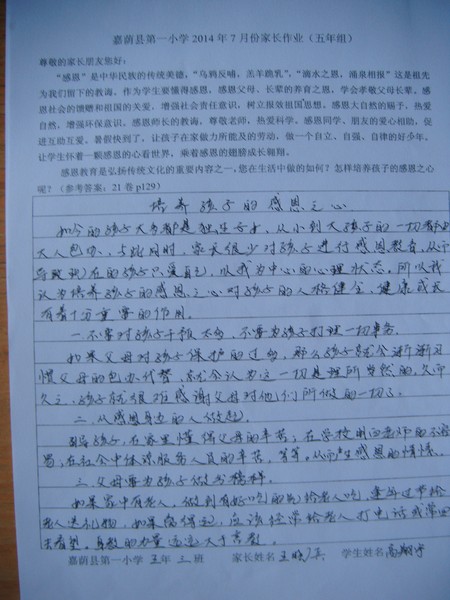 嘉荫县第一小学2014年7月份家长作业（五年组）
尊敬的家长朋友您好：
“感恩”是中华民族的传统美德，“乌鸦反哺，羔羊跪乳”，“滴水之恩，涌泉相报”这是祖先
为我们留下的教诲，作为学生要懂得感恩，感恩父母、长辈的养育之恩，学会孝敬父母长辈。感
恩社会的馈赠和祖国的关爱，增强社会责任意识，树立报效祖国思想。感恩大自然的赐予，热爱
自然、增强环保意识。感恩师长的教诲，尊敬老师，热爱科学。感恩同学、朋友的爱心相助，促
进互助互爱。暑假快到了，让孩子在家做力所能及的劳动，做一个自立、自强、自律的好少年，
让学生怀着一颗感恩的心看世界，乘着感恩的翅膀成长翱翔。
感恩教育是弘扬传统文化的重要内容之一，您在生活中做的如何？怎样培养孩子的感恩之心
呢？（参考答案：21卷p129）
培养孩子的感恩之心
如今的孩子大多都是独生子女，从小到大孩子的一切都由
大人包办，与此同时，家长很少对孩子进行感恩教育，从而
导致现在的孩子只爱自己，以我为中心的心理状态。所以我
认为培养孩子的感恩之心对孩子的人格健全、健康成长
有着十分重要的作用。
一、不要对孩子干预太多，不要为孩子打理一切事务。
如果父母对孩子保护的过多，那么孩子就会渐渐习
惯父母的包办代替，就会认为这一切是理所当然的，久而
久之，孩子就很难感谢父母对他们所做的一切了。
二、从感恩身边的人做起。
引导孩子，在家里懂得父母的辛苦；在学校明白老师的
，在社会中体谅服务人员的辛苦，等等。从而产生感恩的情怀。
三、父母要为孩子做好榜样。
如果家中有老人，做到有好吃的先给老人吃，逢年过节给
老人送礼物，如果离得远，应该经常给老人打电话或常回
去看望，身教的力量远远大于言教。
嘉荫县第一小学 五年 二班 家长姓名 王晓 学生姓名